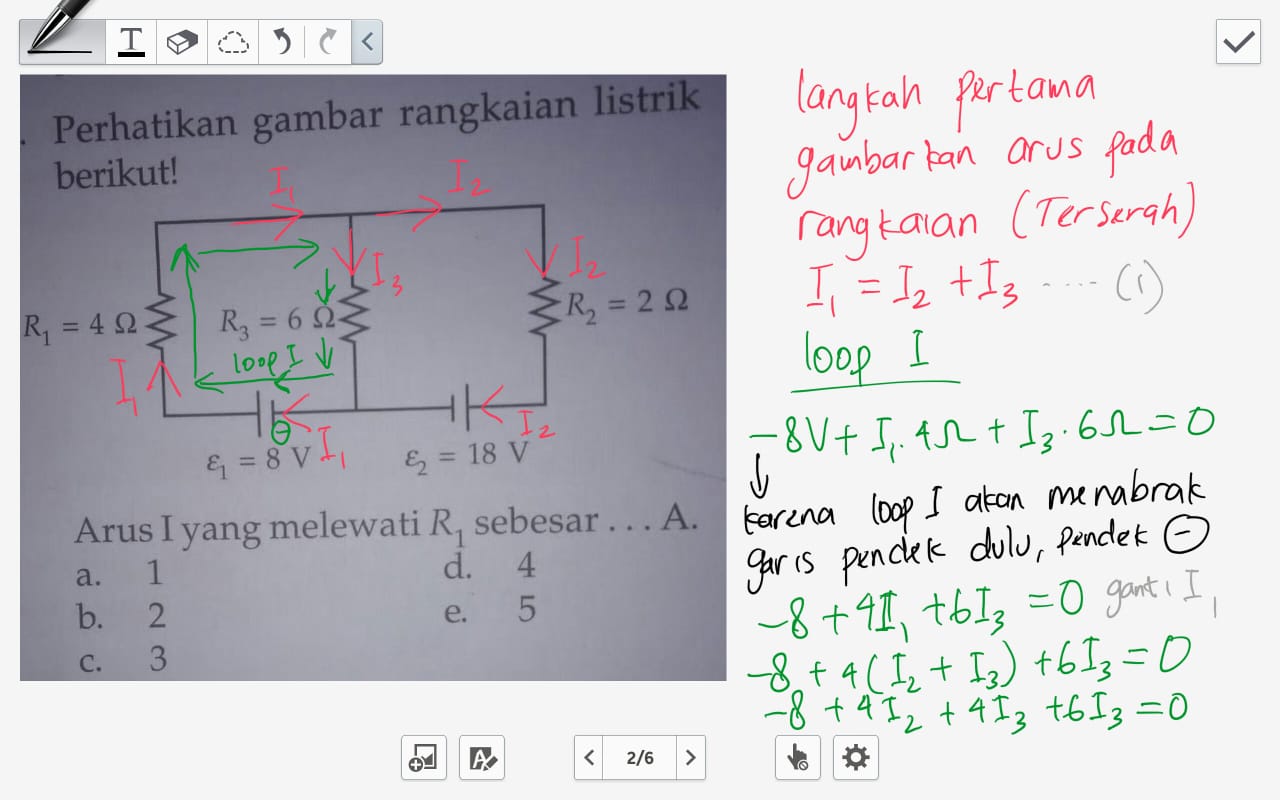 T
Perhatikan gambar rangkaian listrik
berikut!
I₁
I₂
I₃
I₂
R₁ = 4 Ω
R₃ = 6 Ω
R₂ = 2 Ω
loop I
I₁
⊖
I₁
I₂
ε₁ = 8 V
ε₂ = 18 V
Arus I yang melewati R₁ sebesar . . . A.
a. 1
b. 2
c. 3
d. 4
e. 5
langkah pertama
gambarkan arus pada
rangkaian (Terserah)
I₁ = I₂ + I₃ ...... (1)
loop I
-8V + I₁.4Ω + I₃.6Ω = 0
karena loop I akan menabrak
garis pendek dulu, pendek ⊖
-8 + 4I₁ + 6I₃ = 0 ganti I₁
-8 + 4(I₂ + I₃) + 6I₃ = 0
-8 + 4I₂ + 4I₃ + 6I₃ = 0
2/6